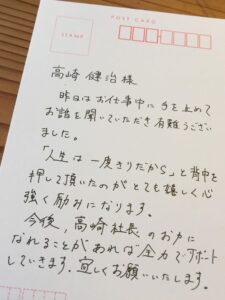 POST CARD
STAMP
高崎 健治 様
昨日はお仕事中に手を止めて
お話を聞いていただき有難うござい
ました。
「人生は一度きりだから」と背中を
押して頂いたのがとても嬉しく心
強く励みになります。
今後,高崎社長のお力に
なれることがあれば全力でサポート
していきます.宜しくお願いいたします.